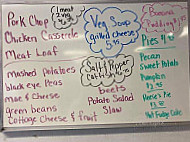 Pork Chop
Chicken Casserole
Meat Loaf
1 meat
2 veg
Veg Soup
grilled cheese
5.95
Banana
Pudding
Pies
Mashed Potatoes
black eye Peas
mac & cheese
green beans
Cottage Cheese & fruit
Salt & Pepper
Catfish
beets
Potato Salad
Slaw
Pecan
Sweet Potato
Pumpkin
Hot Fudge Cake